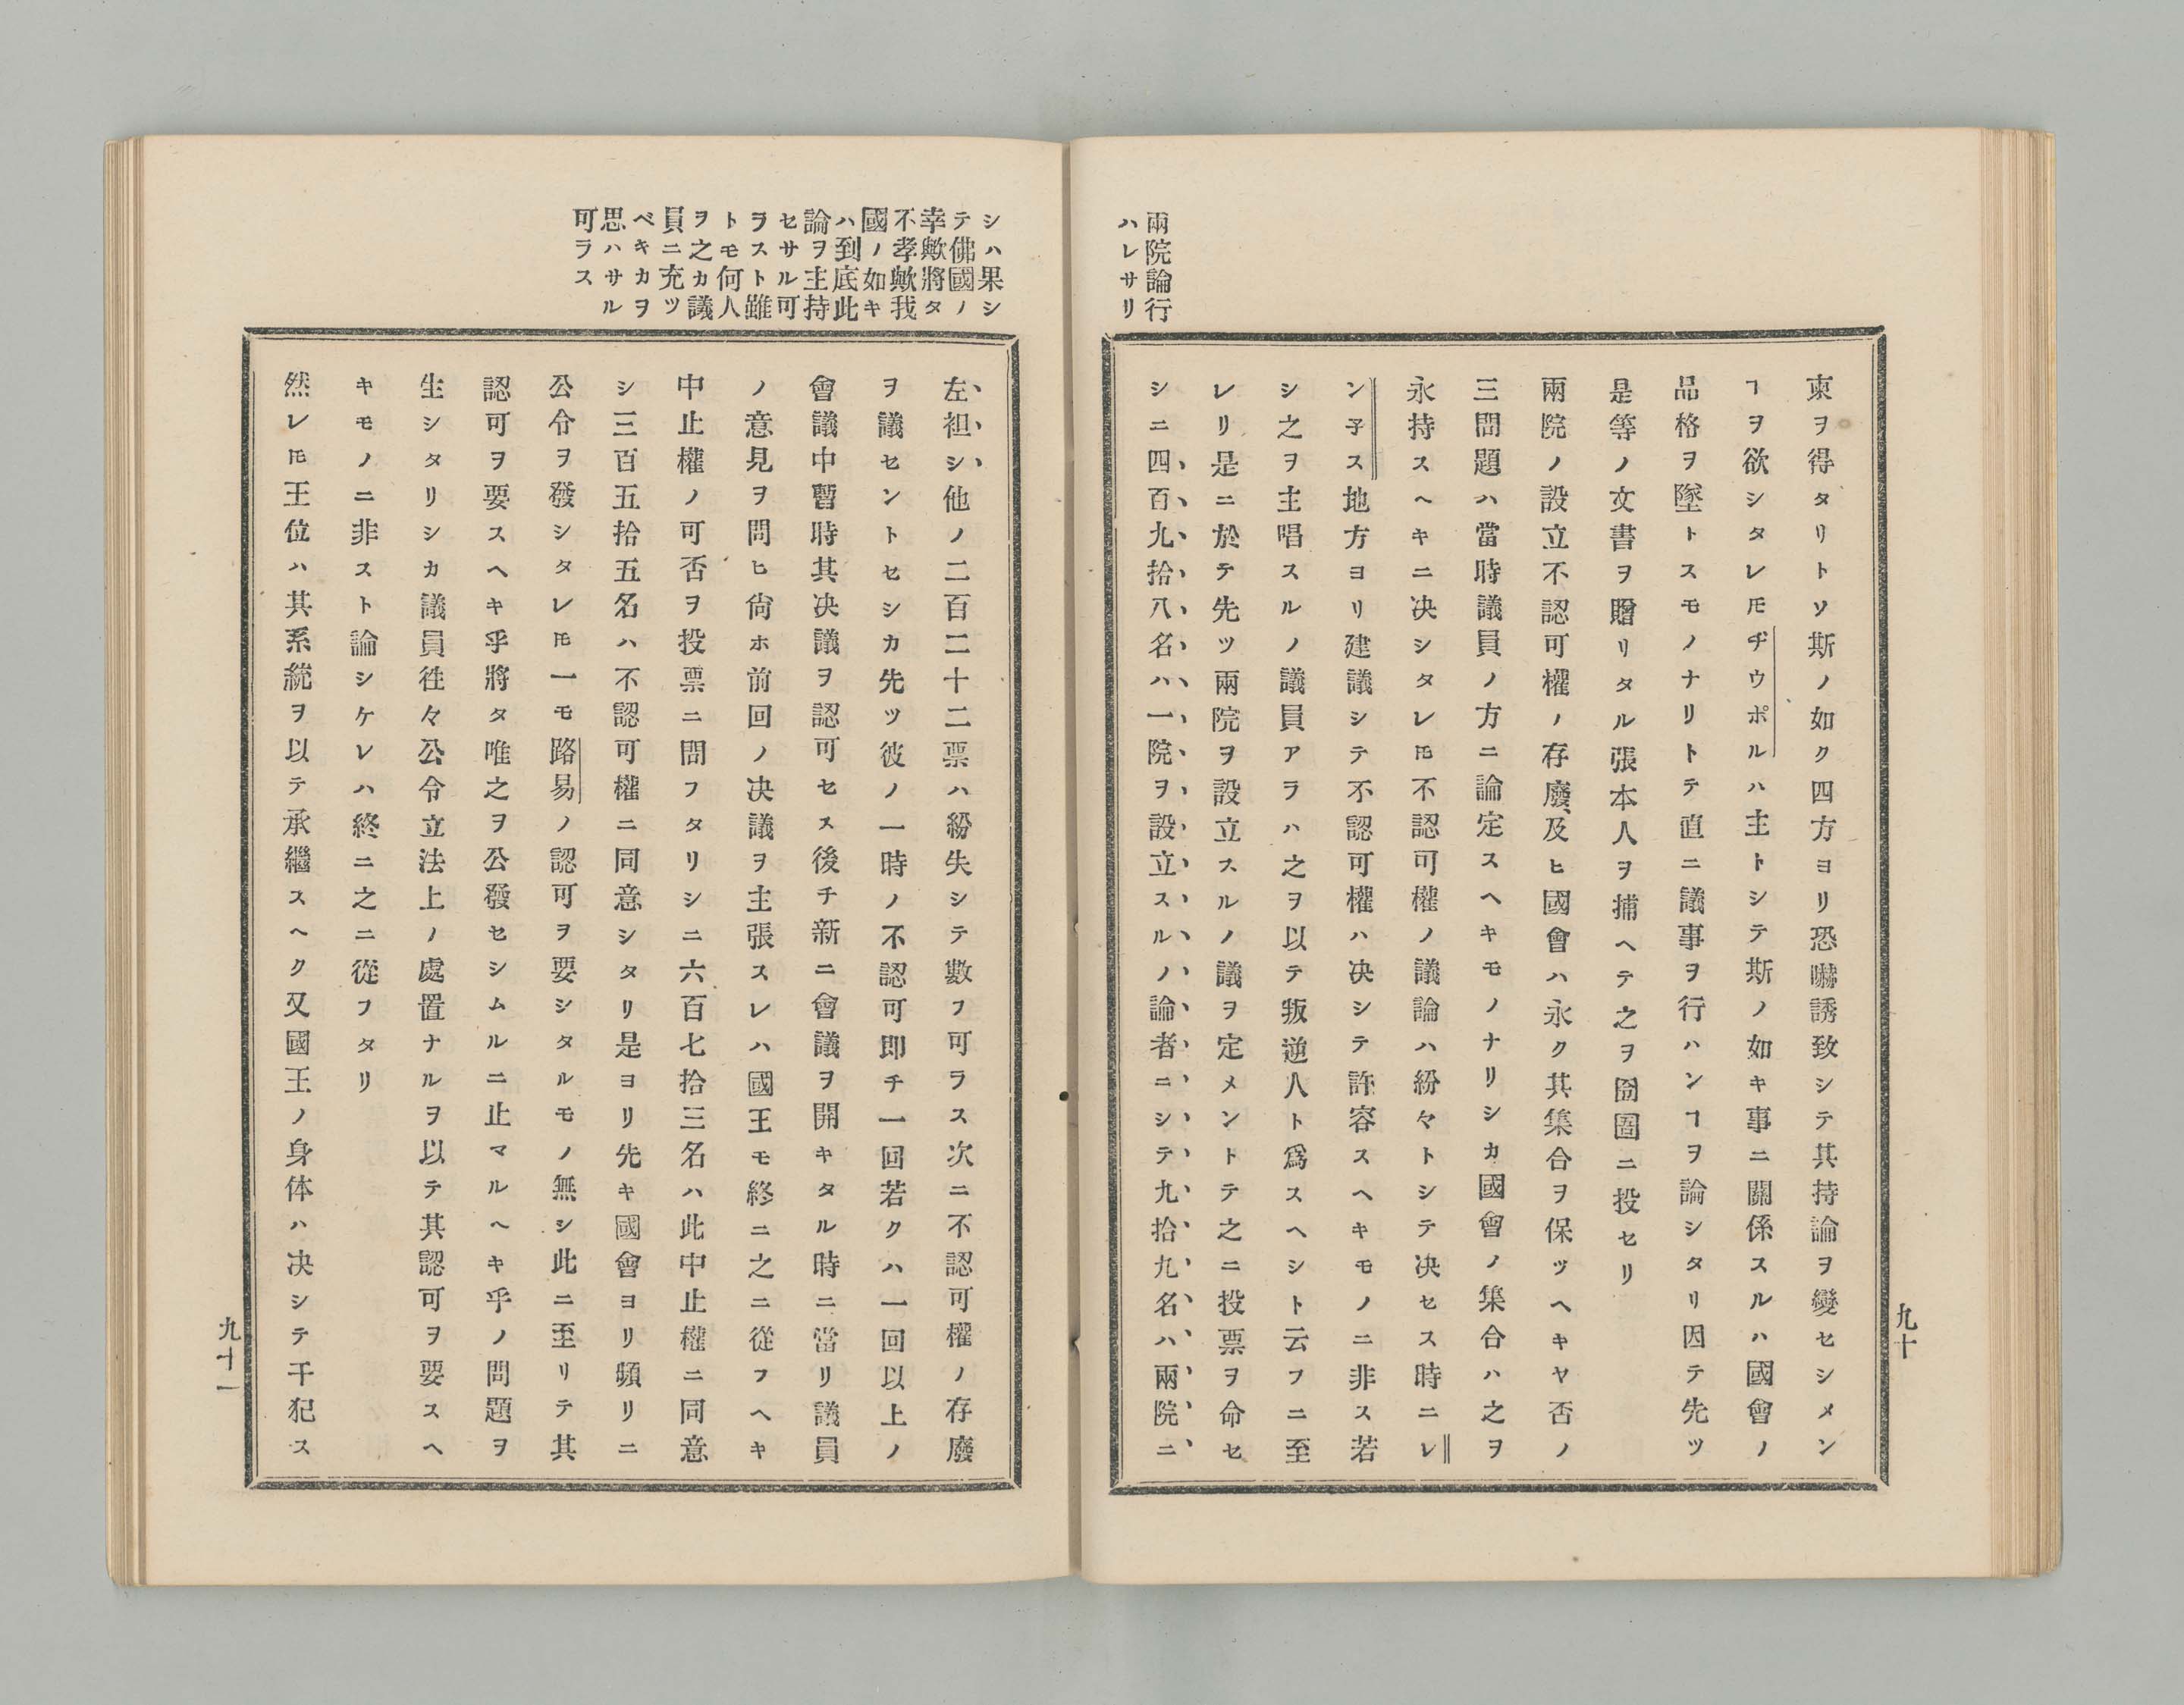 兩院論行
ハレサリ
東ヲ得タリトソ斯ノ如ク四方ヨリ恐嚇誘致シテ其持論ヲ變セシメン
ヿヲ欲シタレ𪜈ヂウポルハ主トシテ斯ノ如キ事ニ關係スルハ國會ノ
品格ヲ墜トスモノナリトテ直ニ議事ヲ行ハンヿヲ論シタリ因テ先ツ
是等ノ文書ヲ贈リタル張本人ヲ捕ヘテ之ヲ囹圄ニ投セリ
兩院ノ設立不認可權ノ存廢及ヒ國會ハ永ク其集合ヲ保ツヘキヤ否ノ
三問題ハ當時議員ノ方ニ論定スヘキモノナリシカ國會ノ集合ハ之ヲ
永持スヘキニ决シタレ𪜈不認可權ノ議論ハ紛々トシテ决セス時ニレ
ン子ス地方ヨリ建議シテ不認可權ハ决シテ許容スヘキモノニ非ス若
シ之ヲ主唱スルノ議員アラハ之ヲ以テ叛逆人ト爲スヘシト云フニ至
レリ是ニ於テ先ツ兩院ヲ設立スルノ議ヲ定メントテ之ニ投票ヲ命セ
シニ四百九拾八名ハ一院ヲ設立スルノ論者ニシテ九拾九名ハ兩院ニ
九十
シハ果シ
テ佛國ノ
幸歟將タ
不孝歟我
國ノ如キ
ハ到底此
論ヲ主持
セサル可
ラスト雖
トモ何人
ヲ之カ議
員ニ充ツ
ベキカヲ
思ハサル
可ラス
左袒シ他ノ二百二十二票ハ紛失シテ數フ可ラス次ニ不認可權ノ存廢
ヲ議セントセシカ先ツ彼ノ一時ノ不認可即チ一回若クハ一回以上ノ
會議中暫時其决議ヲ認可セス後チ新ニ會議ヲ開キタル時ニ當リ議員
ノ意見ヲ問ヒ尙ホ前回ノ决議ヲ主張スレハ國王モ終ニ之ニ從フヘキ
中止權ノ可否ヲ投票ニ問フタリシニ六百七拾三名ハ此中止權ニ同意
シ三百五拾五名ハ不認可權ニ同意シタリ是ヨリ先キ國會ヨリ頻リニ
公令ヲ發シタレ𪜈一モ路易ノ認可ヲ要シタルモノ無シ此ニ至リテ其
認可ヲ要スヘキ乎將タ唯之ヲ公發セシムルニ止マルヘキ乎ノ問題ヲ
生シタリシカ議員徃々公令立法上ノ處置ナルヲ以テ其認可ヲ要スヘ
キモノニ非スト論シケレハ終ニ之ニ從フタリ
然レ𪜈王位ハ其系統ヲ以テ承繼スヘク又國王ノ身体ハ决シテ干犯ス
九十一